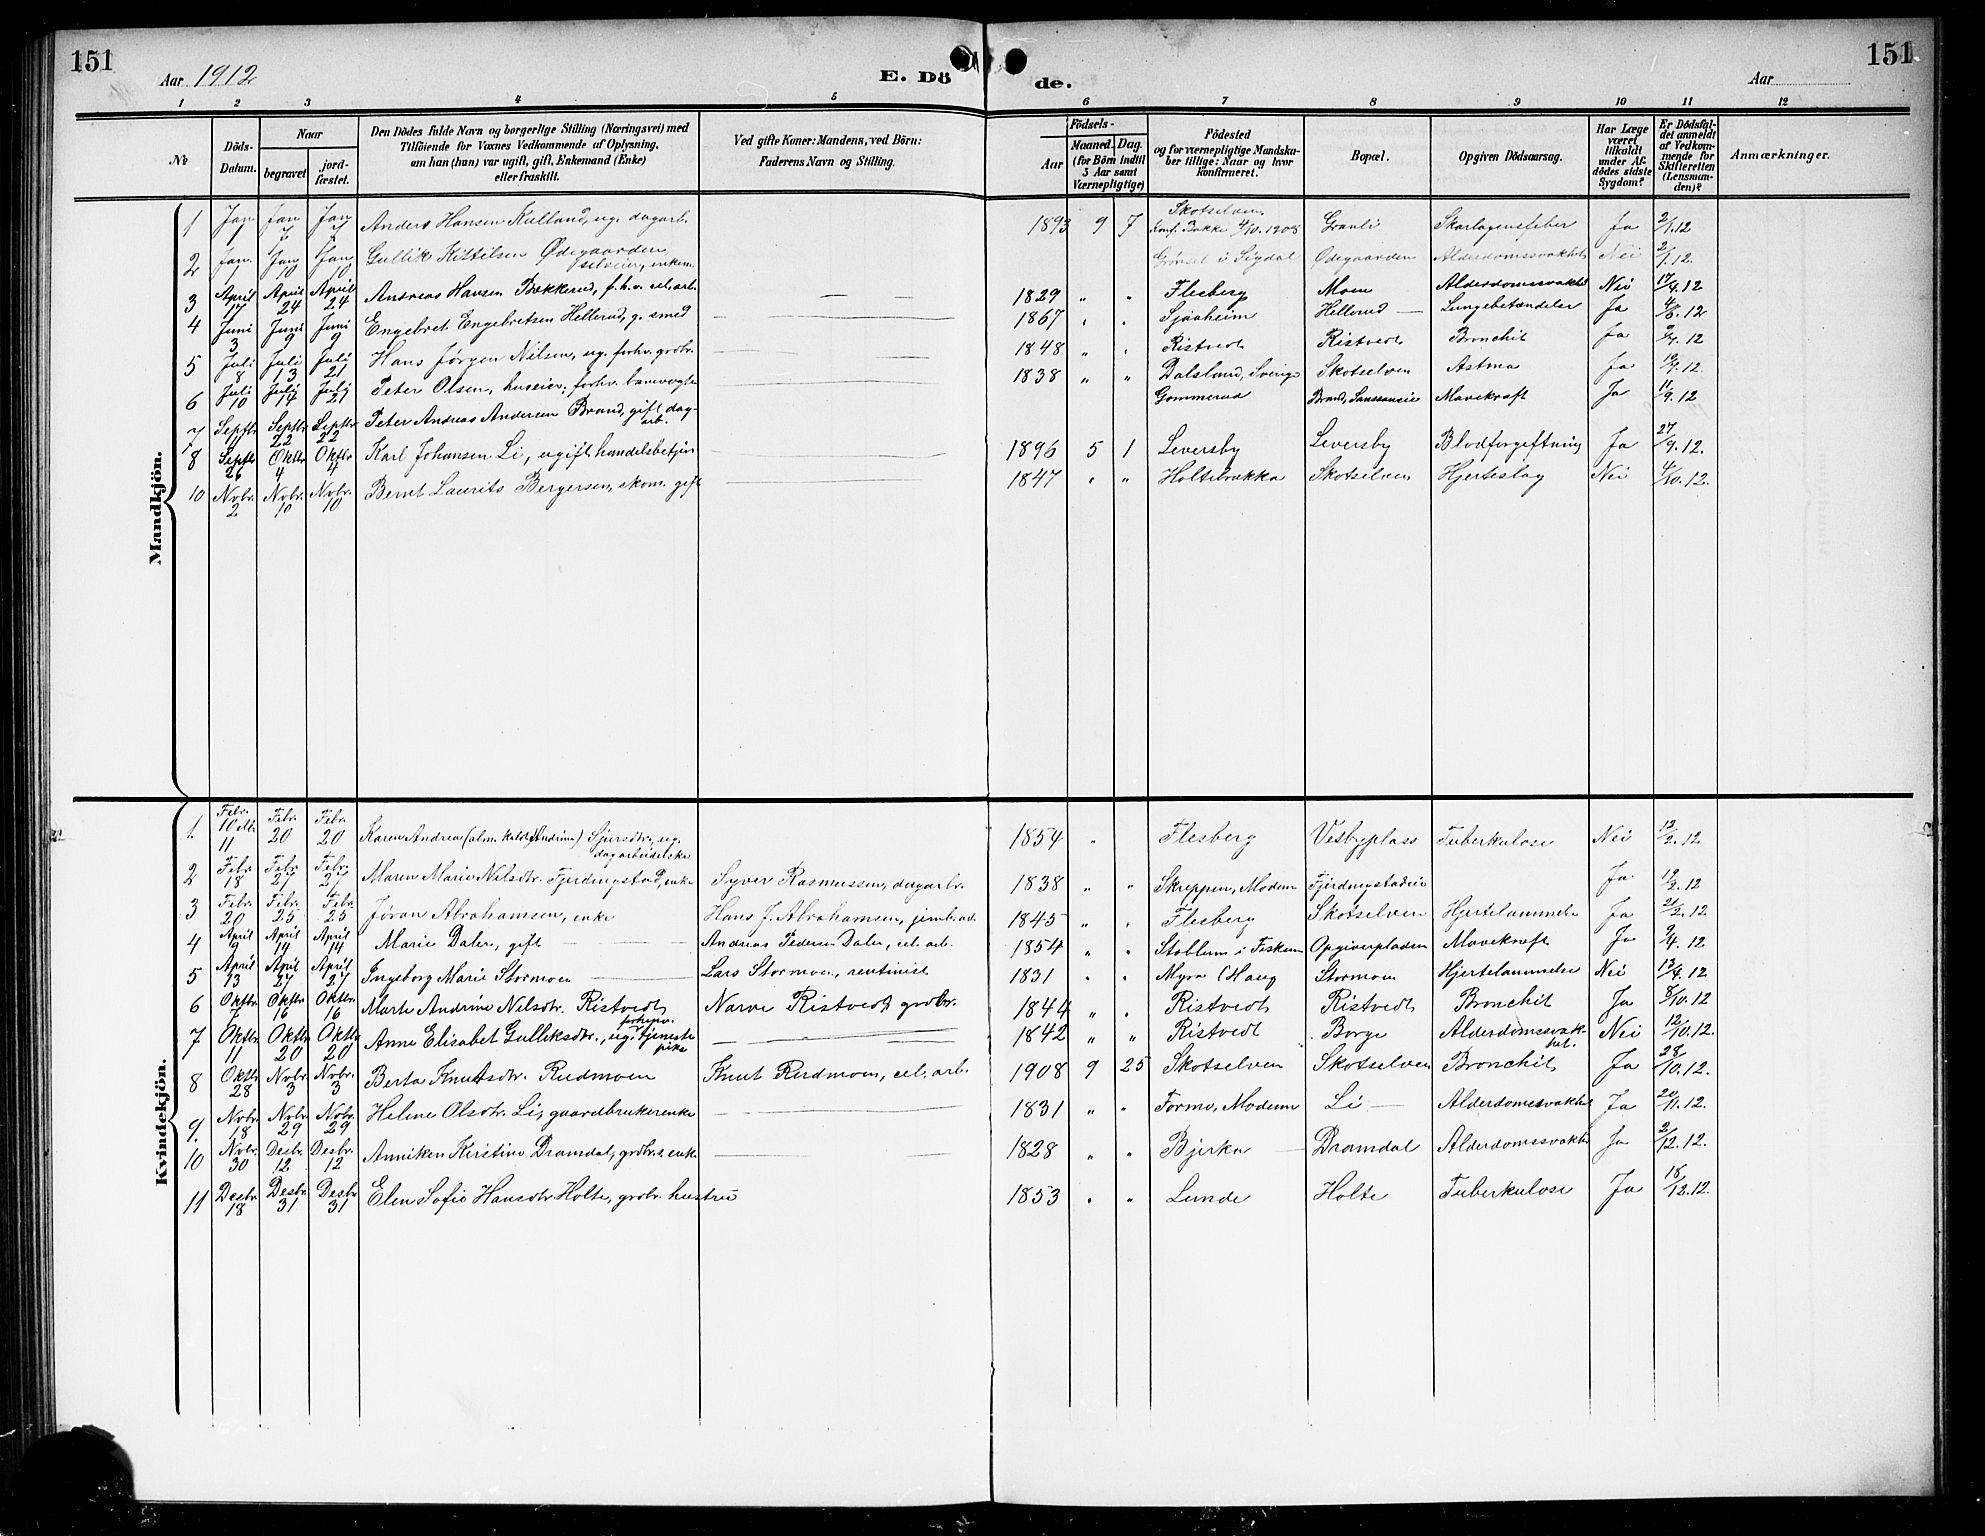 151
Aar 1912
E. Dö
de.
Aar
151
1 2 3 4 5 6 7 8 9 10 11 12
No
Döds-Datum.
Naar
begravet
jord-fæstet.
Den Dödes fulde Navn og borgerlige Stilling (Næringsvei) med
Tilföiende for Voxnes Vedkommende af Oplysning,
om han (hun) var ugift, gift, Enkemand (Enke)
eller fraskilt.
Ved gifte Koner: Mandens, ved Börn:
Faderens Navn og Stilling.
Födsels-
Aar
Maaned. Dag.
(for Börn indtil
5 Aar samt
Værnepligtige)
Födested
og for værnepligtige Mandska-
ber tillige: Naar og hvor
konfirmeret.
Bopæl.
Opgiven Dödsaarsag.
Har Læge
været
tilkaldt
under Af-
dödes sidste
Sygdom?
Er Dödsfal-
det anmeldt
af Vedkom-
mende for
Skifteretten
(Lensman-
den)?
Anmærkninger.
Mandkjön.
1 Jan. 1 Jan 7 Jan 7 Anders Hansen Kulland, ug. dagarb. 1893 9 7 Skotselven Konf. Bakke 4/10. 1908 Granli Skarlagensfeber Ja 2/1.12
2 Jan. 1 Jan 10 Jan 10 Gullik Kittilsen Ødegaarden selveier, enkem. Grønsel i Sigdal Ødegaarden Alderdomssvakhet Nei 2/1.12.
3 April 17 April 24 April 24 Andreas Hansen Bekkerud, f.h.v. cel.arb. — — 1829 " " Flesberg Moen Alderdomssvakhet Nei 17/4.12
4 Juni 3 Juni 9 Juni 9 Engebret Engebretsen Hellerud, g. smed 1867 " " Sjaaheim Hellerud — Lungebetændelse Ja 4/6.12
5 Juli 8 Juli 13 Juli 21 Hans Jørgen Nilsen, ug. forhv. grdbr. 1848 " " Ristvedt Ristvedt Bronchit Ja 9/7.12
6 Juli 10 Juli 14 Juli 21 Peter Olsen, huseier, forhv. banevogter 1838 " " Dalsland, Sverige Skotselven Astma Ja 10/7.12
7 Septbr Septbr 22 Septbr 22 Peter Andreas Andersen Brand, gift, dagarb. Gommerud Brand, Sanssousie Mavekræft Ja 11/9.12
8 Septbr 26 Oktbr 4 Oktbr 4 Karl Johansen Li, ugift handelsbetjen 1896 5 1 Leversby Leversby Blodforgiftning Ja 27/9.12.
10 Nvbr. 2 Nvbr. 10 Nvbr. 10 Bernt Laurits Bergersen, skom. gift 1847 " " Holtebrækka Skotselven Hjerteslag Nei 4/10.12.
Kvindekjön.
1. Febr. 10 11 Febr. 20 Febr. 20 Karen Andrea (alm. kaldet Andrine) Sjursdtr., ug. dagarbeiderske 1854 " Flesberg Vesbyplass Tuberkulose Nei 12/2.12
2 Febr. 18 Febr. 27 Febr. 27 Maren Marie Nilsdtr. Fjerdingstad, enke Syver Rasmussen, dagarbr. 1838 " " Skreppen, Modum Fjerdingstadeie Ja. 19/2.12
3 Febr. 20 Febr. 25 Febr. 25 Jøran Abrahamsen, enke Hans J. Abrahamsen, 1845 " " Flesberg Skotselven Hjertelammelse Ja 21/2.12
4 April 9 April 14 April 14 Marie Daler, gift — — Andreas Pedersen Daler, cel. arb. 1854 " " i Fiskum Opgiverpladsen Mavekræft Ja 9/4.12
5 April 13 April 27 April 27 Ingeborg Marie Stormoen — Lars Stormoen, rentinist 1831 " " Myra (Haug Stormoen Hjertelammelse Nei 13/4.12
6 Oktbr. 7 Oktbr. 16 Oktbr. 16 Marte Andrine Nilsdtr. Ristvedt Narve Ristvedt grdbr. 1844 " " Ristvedt Ristvedt Bronchit Ja 8/10.12
7 Oktbr 11 Oktbr 20 Oktbr 20 Anne Elisabet Gulliksdtr., ug. forhenv. tjenestepike — 1842 " " Ristvedt Borge Alderdomssvakhet. Nei 12/10.12.
8 Oktbr 28 Nvbr. 3 Nvbr. 3 Berta Knutsdtr. Rudmoen Knut Rudmoen, cel. arb. 1908 9 25 Skotselven Skotselven Bronchit Ja 28/10.12.
9. Nvbr. 18 Nvbr. 29 Nvbr. 29 Helene Olsdtr. Li, gaardbrukerenke — — 1831 " " Formo, Modum Li — Alderdomssvakhet Ja 20/11.12.
10 Nvbr. 30 Desbr. 12 Desbr. 12 Anniken Kirstine Dramdal, grdbr.s enke — — 1828 " " Bjerka — Dramdal Alderdomssvakhet Ja 2/12.12.
11 Desbr 18 Desbr. 31 Desbr 31 Elen Sofie Hansdtr. Holte, grdbr. hustru 1853 " " Lunde Holte Tuberkulose Ja 18/12.12.